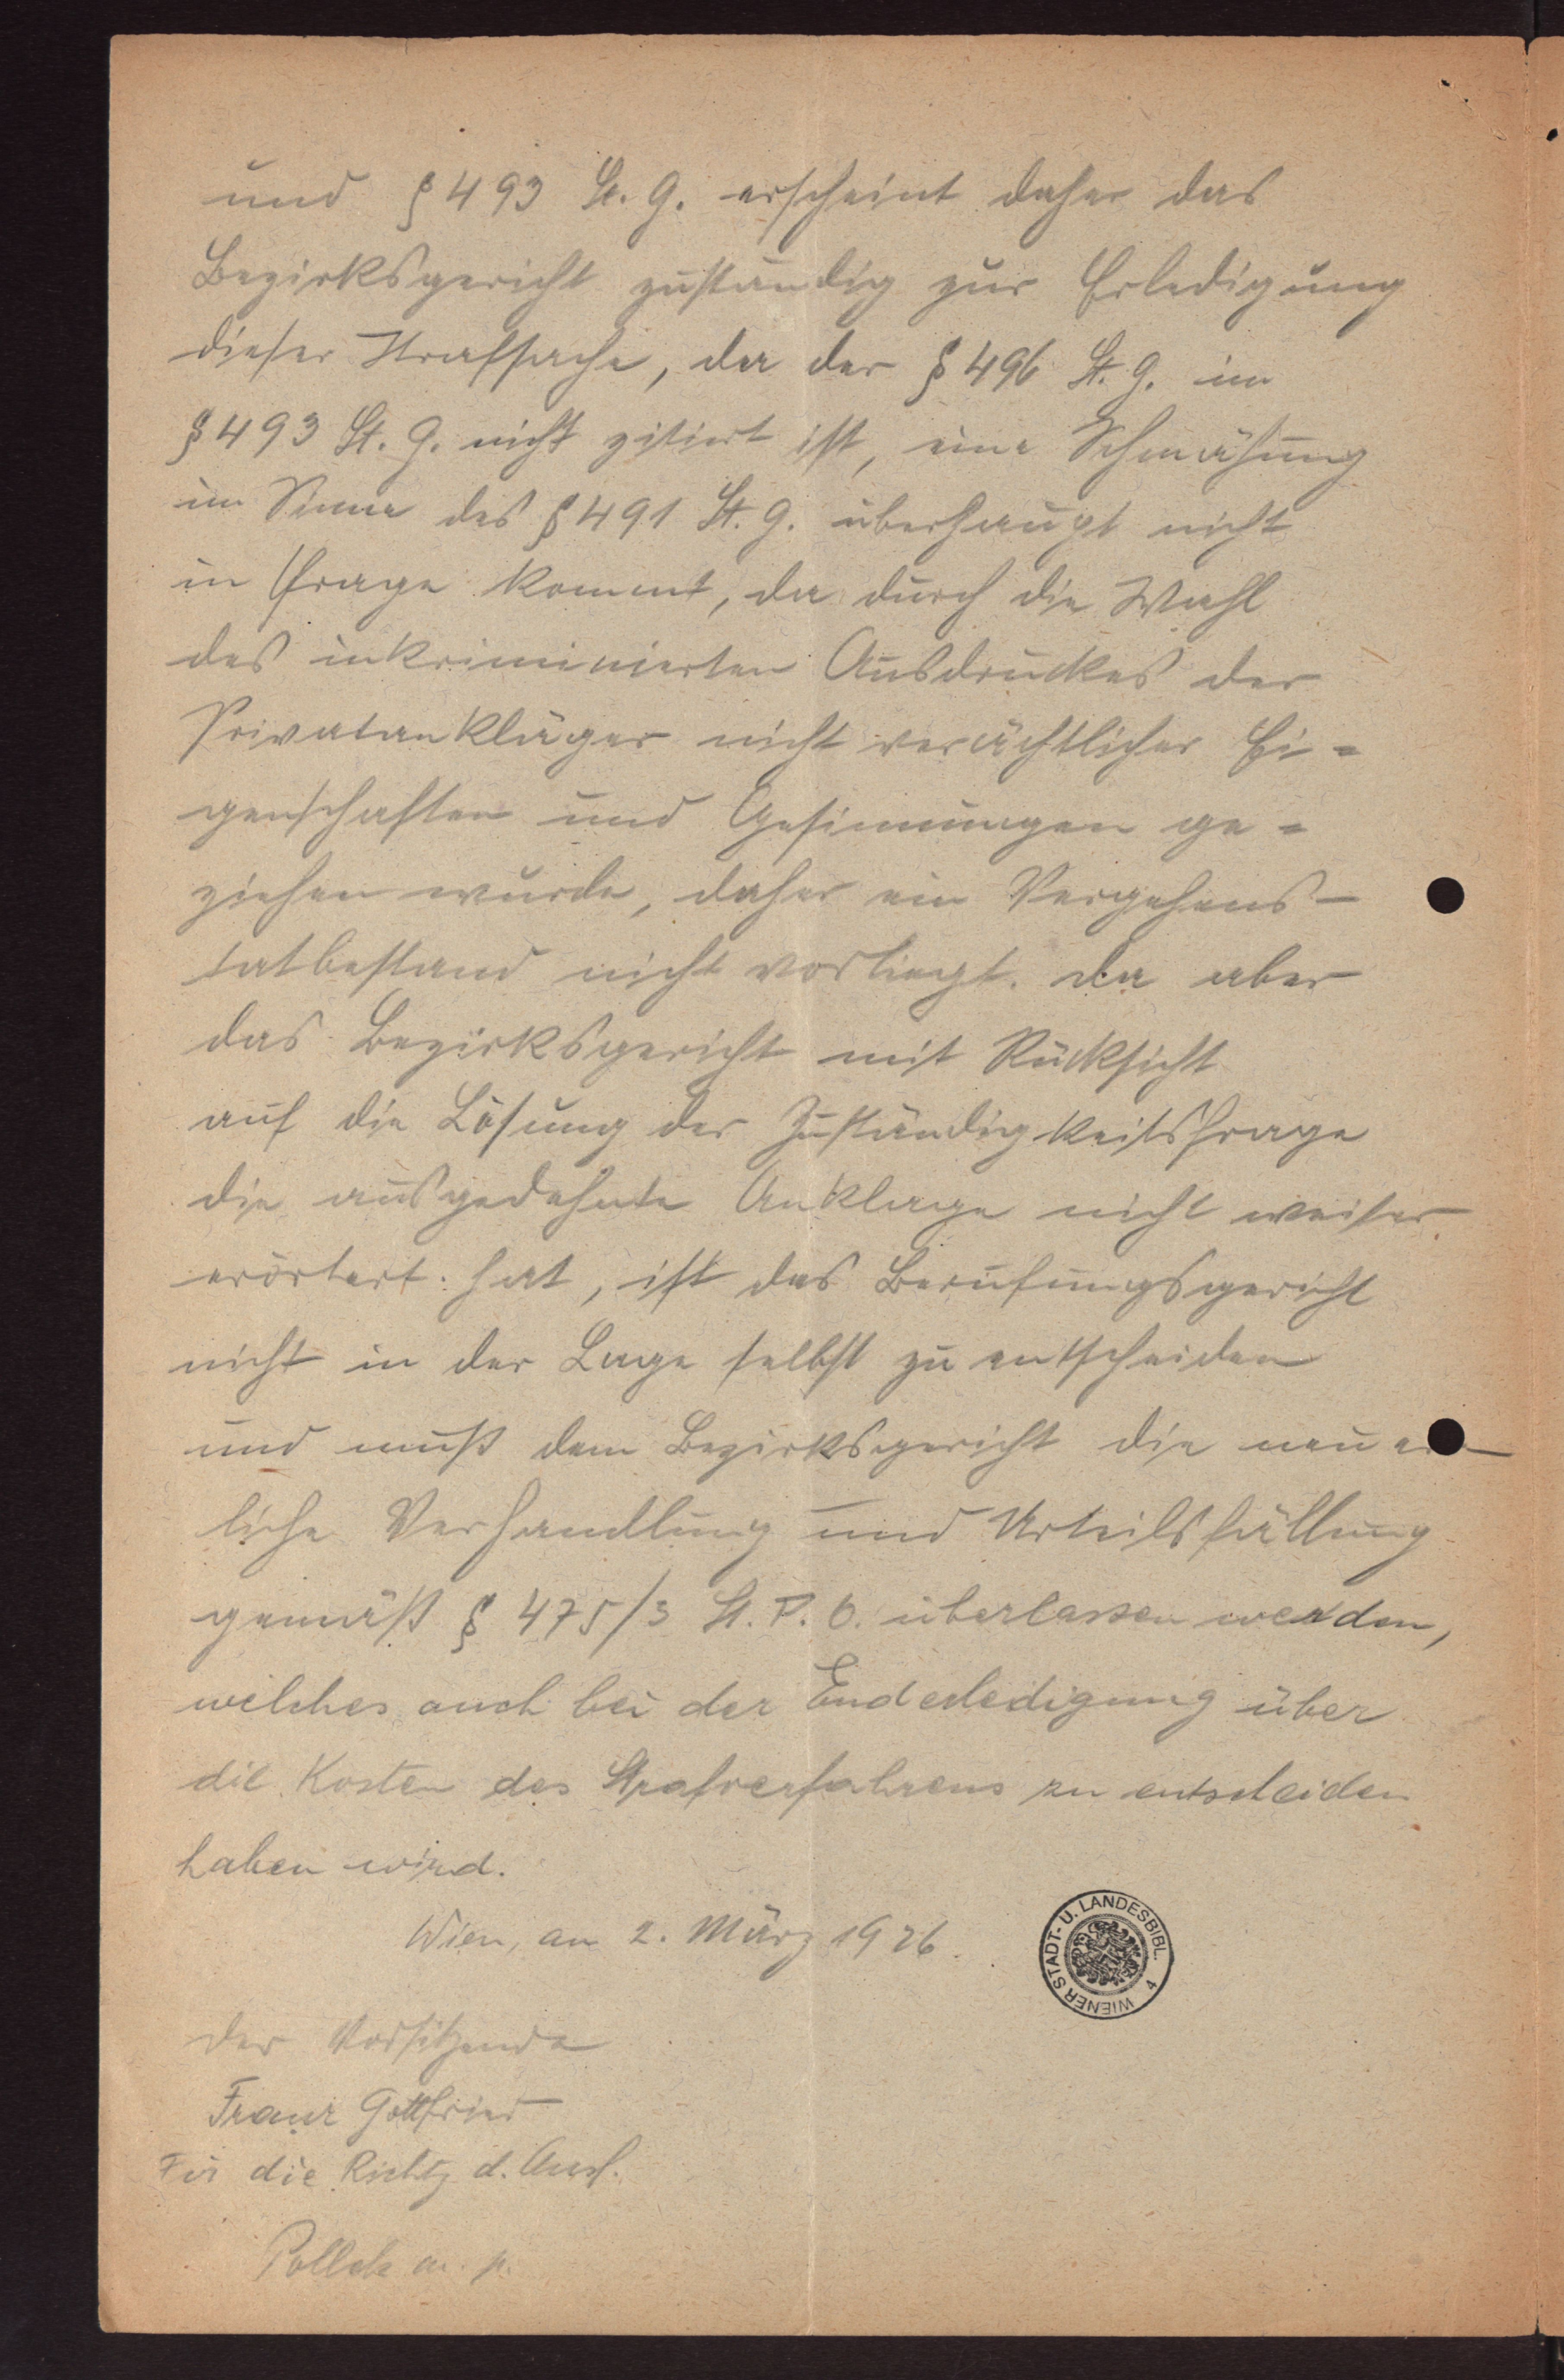 und § 493 St. G. erscheint daher das
Bezirksgericht zuständig zur Erledigung
dieser Strafsache, da der § 496 St. G. im
§ 493 St. G. nicht zitiert ist, eine Schmähung
im Sinne des § 491 St. G. überhaupt nicht
in Frage kommt, da durch die Wahl
des inkriminierten Ausdruckes der
Privatankläger nicht verächtlicher Ei=
genschaften und Gesinnungen ge=
ziehen wurde, daher ein Vergehens-
tatbestand nicht vorliegt. Da aber
das Bezirksgericht mit Rücksicht
auf die Lösung der Zuständigkeitsfrage
die ausgedehnte Anklage nicht weiter
erörtert hat, ist das Berufungsgericht
nicht in der Lage selbst zu entscheiden
und muß dem Bezirksgericht die neuer-
liche Verhandlung und Urteilsfällung
gemäß § 475/3 St. P. O. überlassen werden,
welches auch bei der Enderledigung über
die Kosten des Strafverfahrens zu entscheiden
haben wird.
Wien, am 2. März 1926.
WIENER STADT- U. LANDESBIBL. 4
Der Vorsitzende
Franz Gottfried
Für die Richtg d. Ausf.
Pollak m. p.